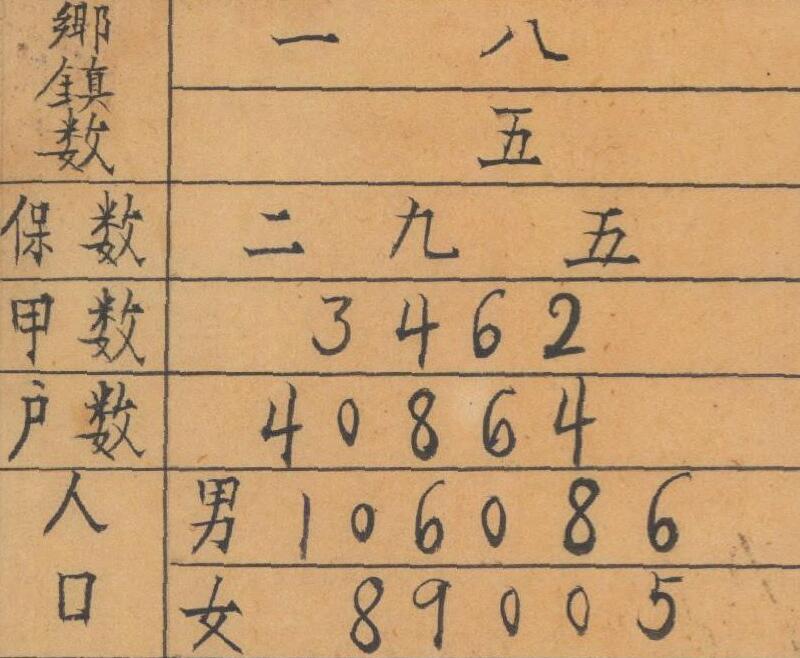 鄉鎮数 一八
五
保数 二九五
甲数 3462
户数 40864
人口 男 106086
女 89005